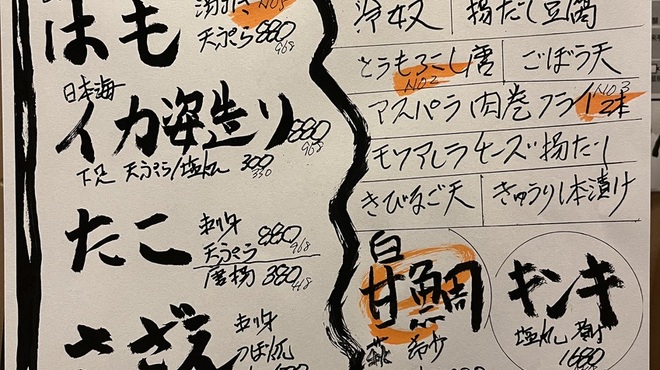 はも
天ぷら 880
968
日本海
イカ姿造り 880
968
下足 天ぷら/塩丸 300
330
たこ
刺身
天ぷら 880
968
唐揚 380
418
さざえ
刺身
つぼ丸
冷奴 揚だし豆腐
とうもろこし唐 ごぼう天
NO2
アスパラ肉巻フライ 2本
NO3
モツァレラチーズ揚だし
きびなご天 きゅうり1本漬け
白
甘鯛
キンキ
1680